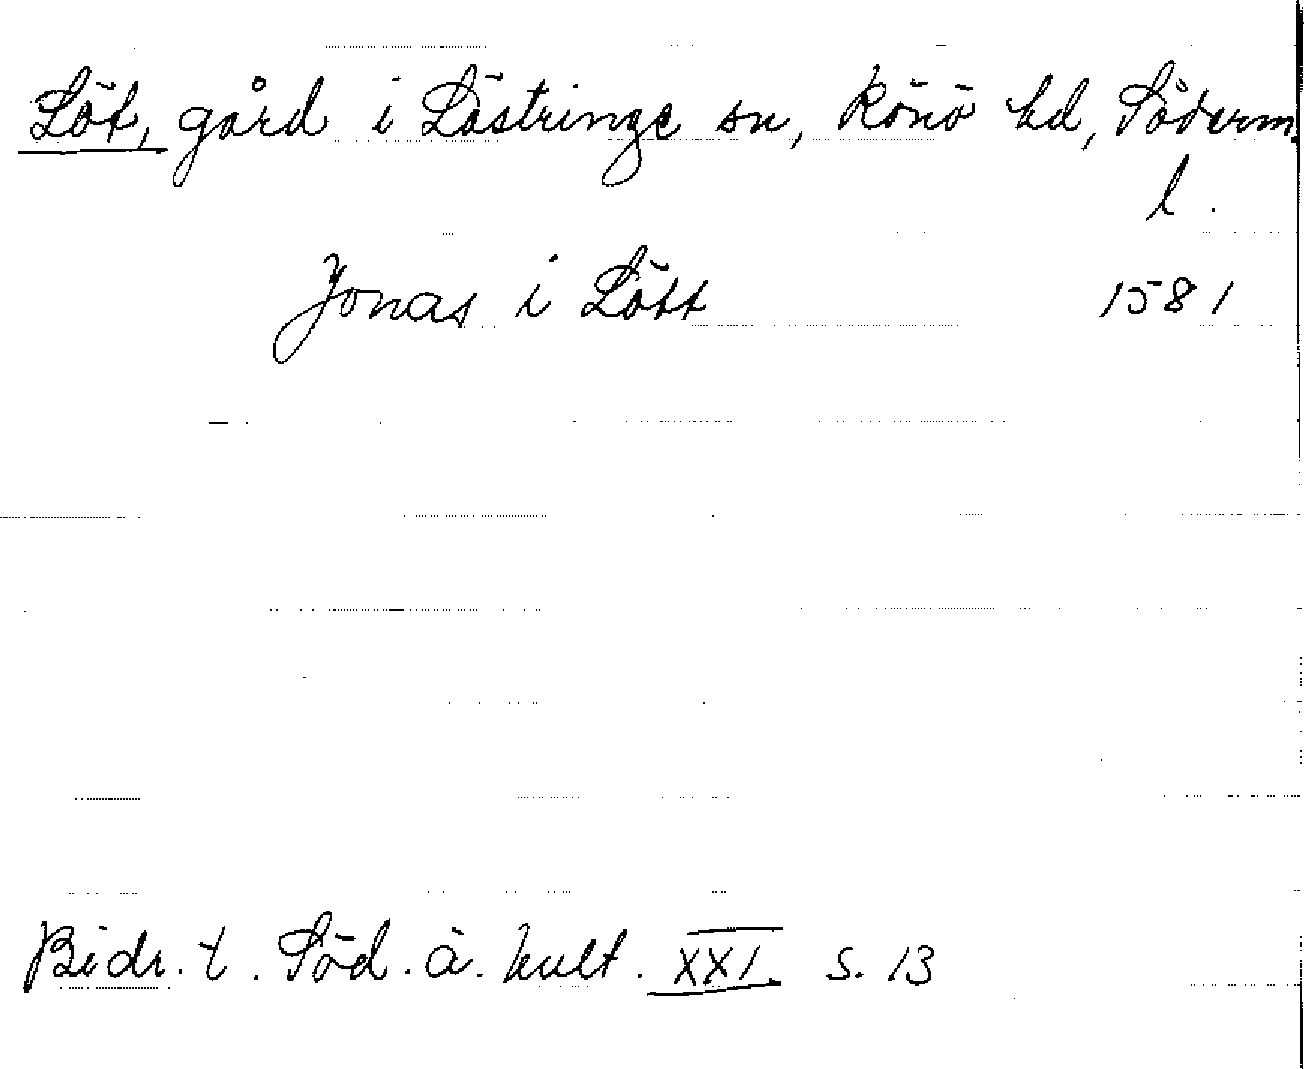 Löt, gård i Lästringe sn, Rönö hd, Söderm.
l.
Jonas i Lött 1581
Bidr. t. Söd. ä. kult. XXI. s. 13